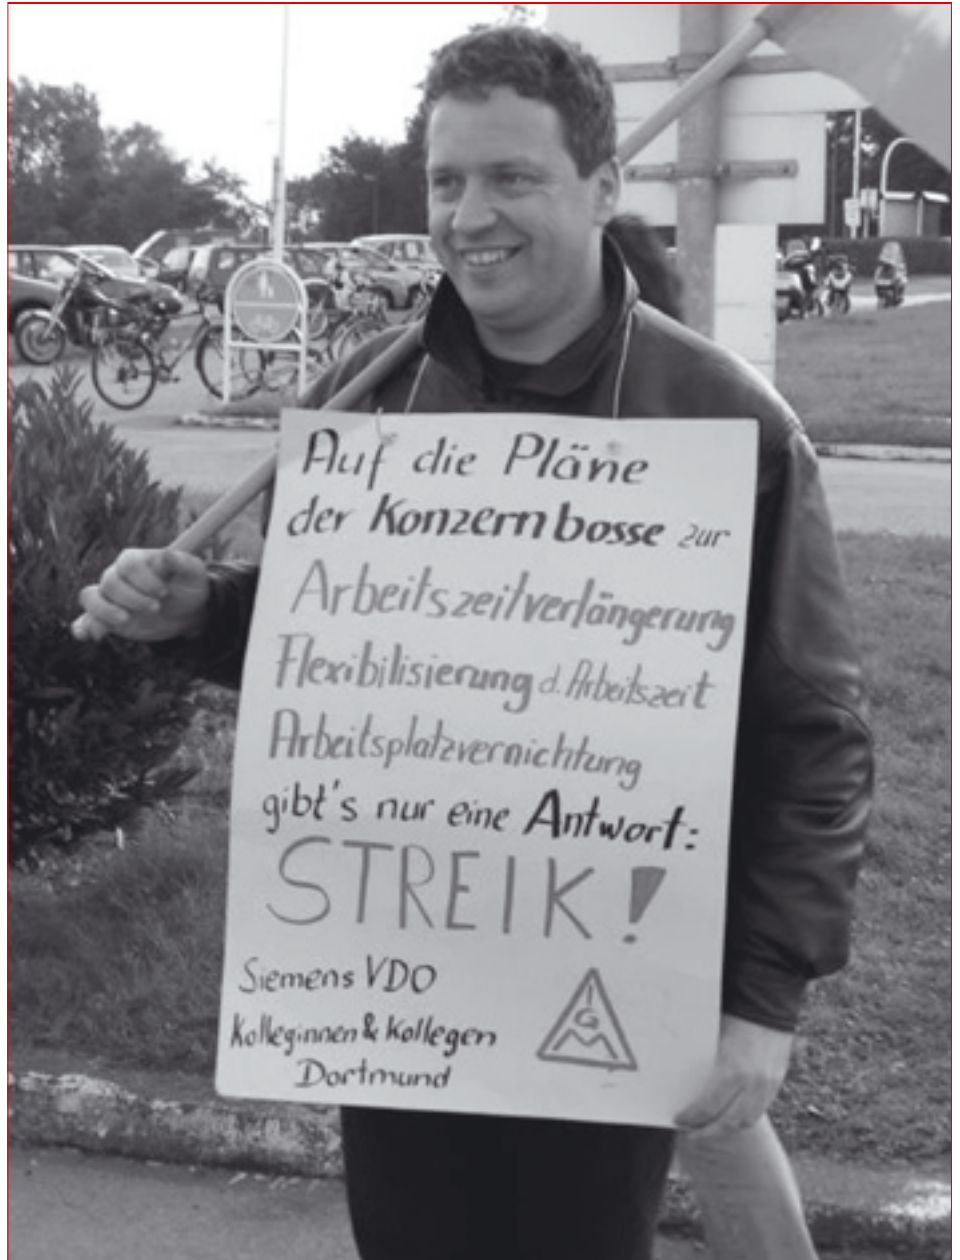 Auf die Pläne
der Konzernbosse zur
Arbeitszeitverlängerung
Flexibilisierung d. Arbeitszeit
Arbeitsplatzvernichtung
gibt's nur eine Antwort:
STREIK!
Siemens VDO
Kolleginnen & Kollegen
Dortmund
IGM